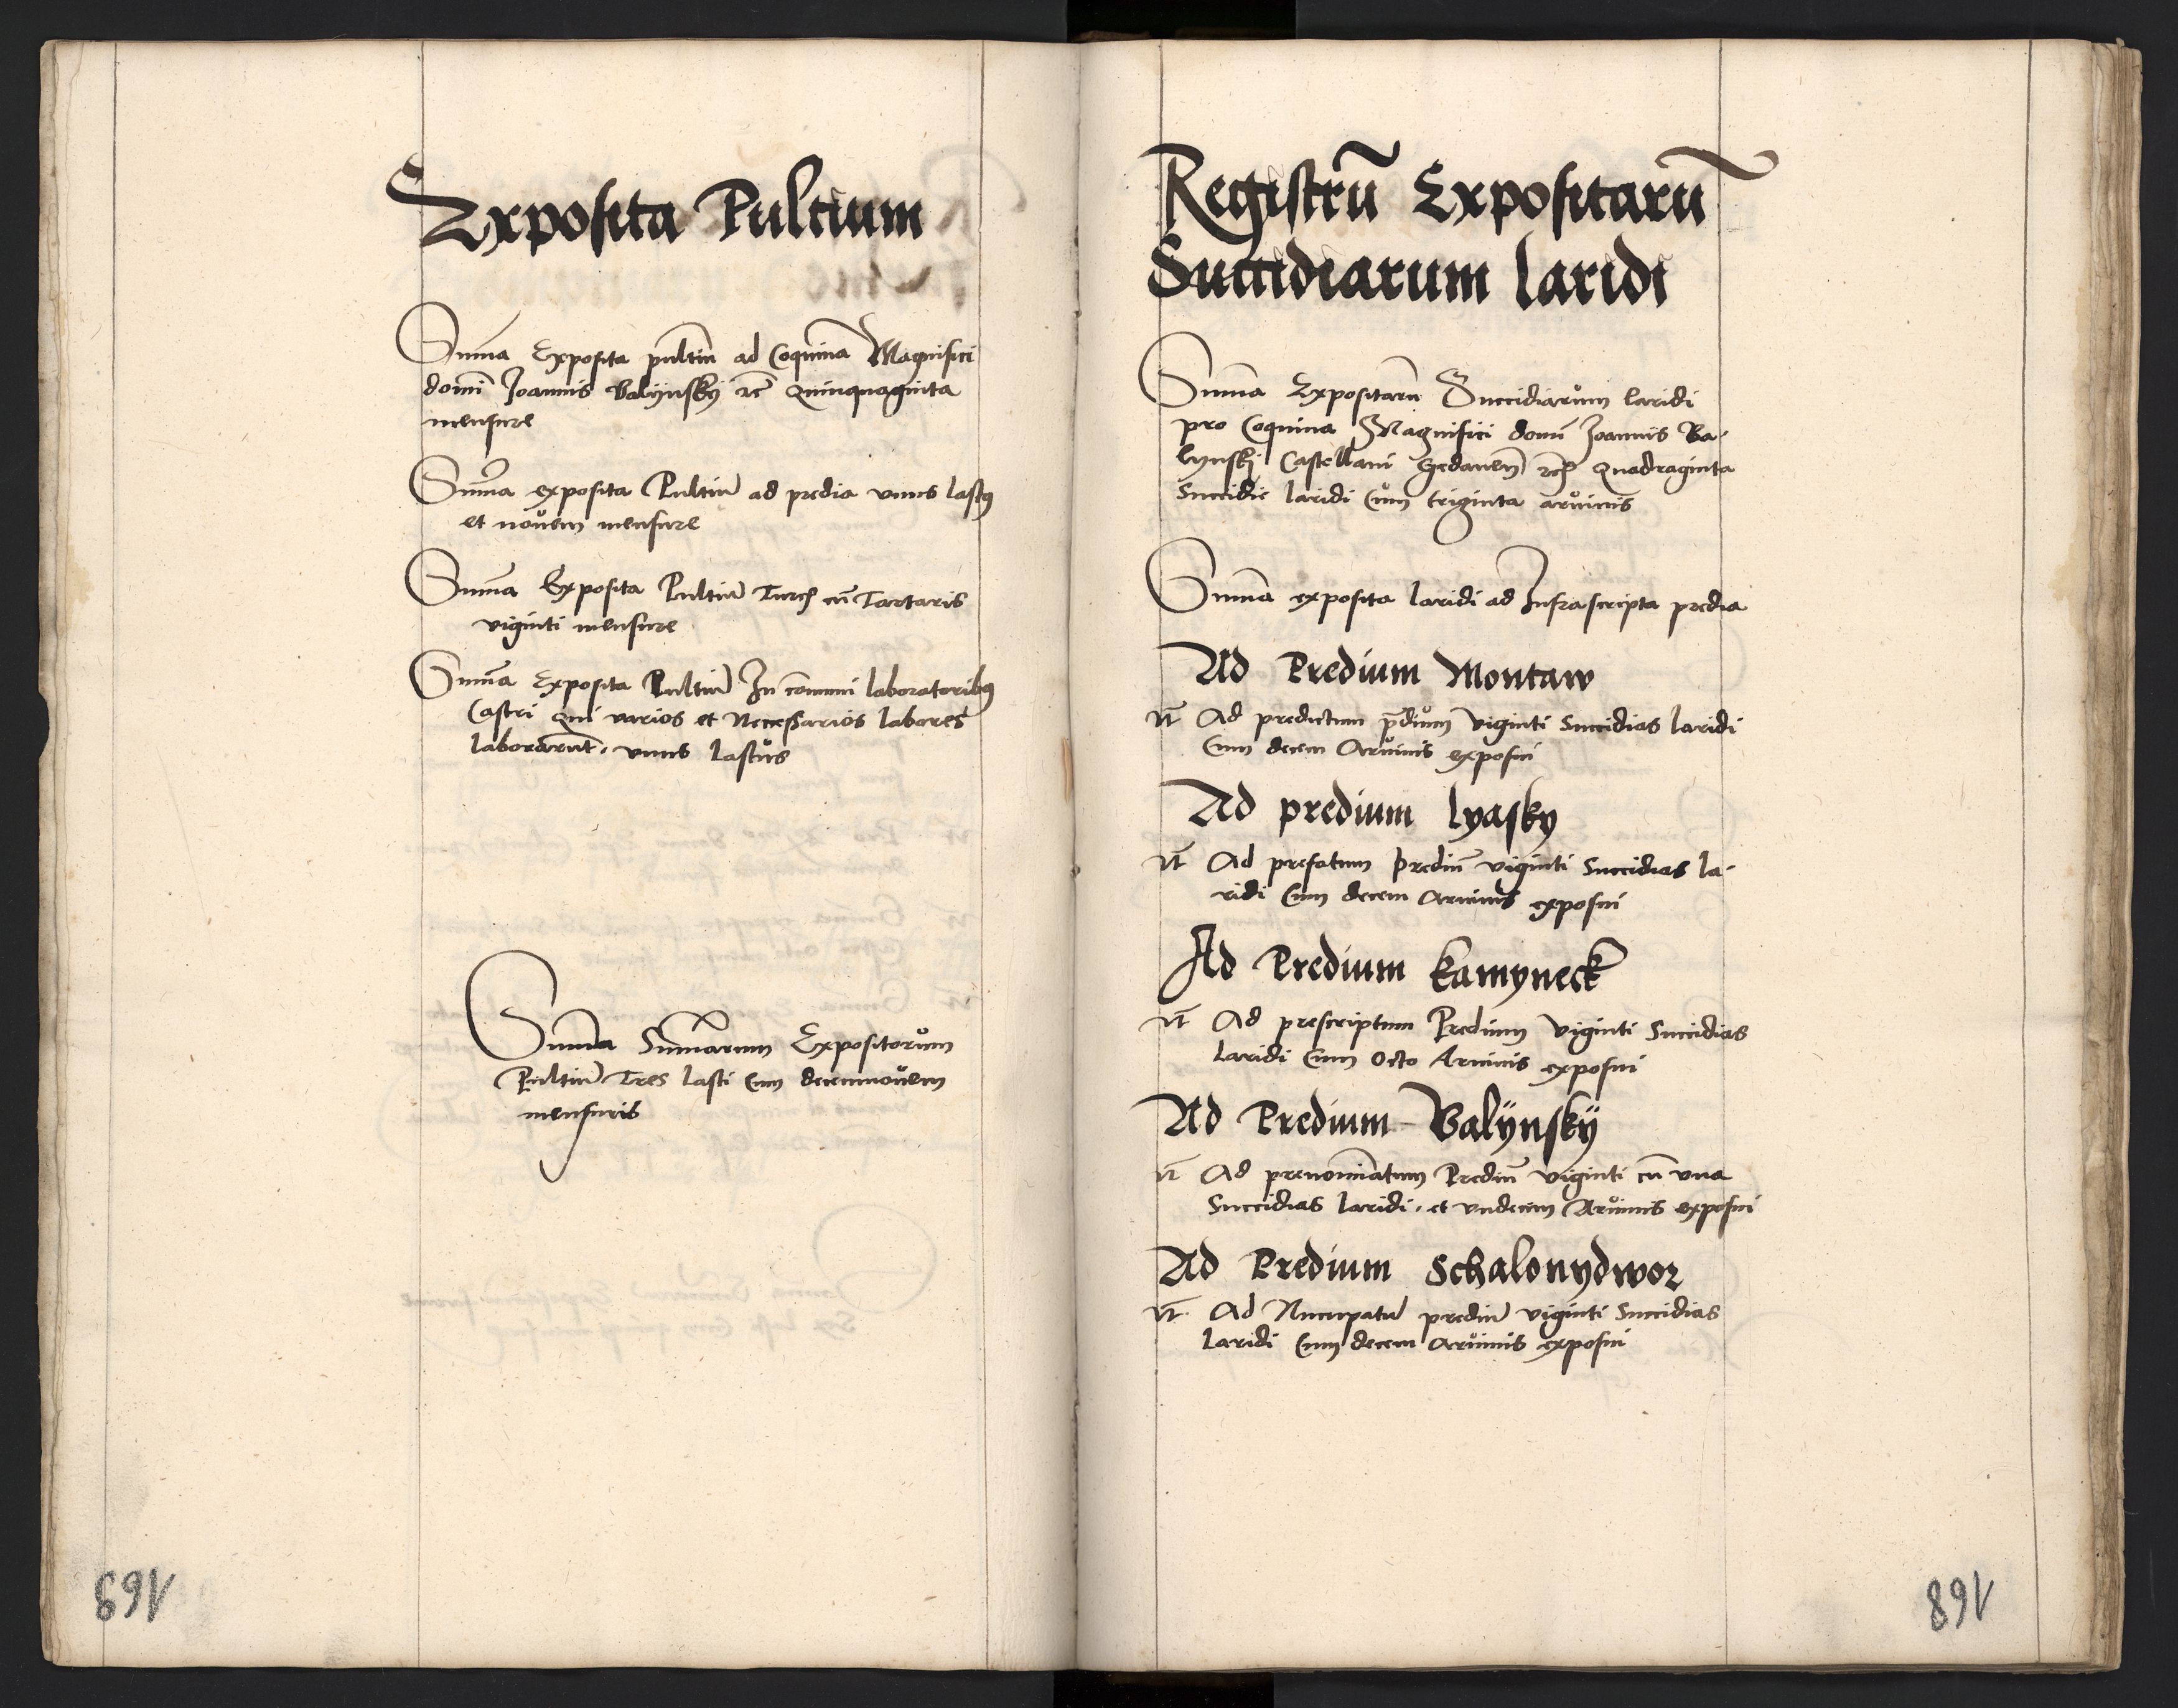 Exposita Pultium
Summa Exposita pultiu ad Coquina Magnifici
domi Joannis Balÿnskÿ rc Quinquaginta
mensure
Suma exposita Pultiu ad predia vnus lastus
et novem mensure
Summa Exposita Pultiu Turc cu Tartaris
viginti mensure
Summa Exposita Pultiu In comuni laboratoribus
Castri qui varios et Necessarios labores
laborarut. vnus lastus
Summa Summarum Expositorum
Pultiu Tres lasti Cum decemnovem
mensuris
169
Registrū Expositarū
Succidiarum laridi
Summa Expositaru Succidiarum laridi
pro Coquina Magnifici domi Joannis Ba-
lynskj Castellani Gedanen rc Quadraginta
Succidie laridi Cum triginta arvinis
Summa exposita laridi ad Infrascripta predia
Ad Predium Montaw
It Ad predictum pdium viginti Succidias laridi
Cum decem Arvinis exposui
Ad predium lyasky
It Ad prefatum prediu viginti Succidias la-
ridi Cum decem Arvinis exposui
Ad Predium kamyneck
It Ad prescriptum Predium viginti Succidias
laridi Cum Octo Arvinis exposui
Ad Predium Balÿnskÿ
It Ad prenominatum Prediu viginti cu vna
Succidias laridi. et vndecim Arvinis exposui
Ad Predium Schalonydwor
It Ad Nuncupatu prediu viginti Succidias
laridi Cum decem Arvinis exposui
168